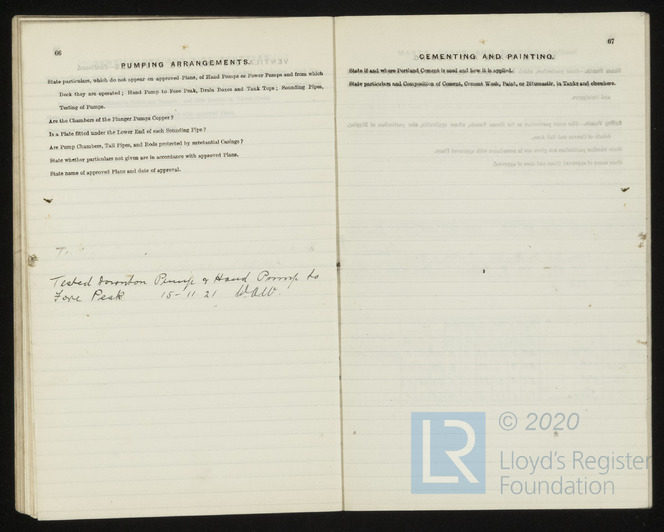 66
PUMPING ARRANGEMENTS.
State particulars, which do not appear on approved Plans, of Hand Pumps or Power Pumps and from which
Deck they are operated; Hand Pump to Fore Peak, Drain Boxes and Tank Tops; Sounding Pipes,
Testing of Pumps.
Are the Chambers of the Plunger Pumps Copper?
Is a Plate fitted under the Lower End of each Sounding Pipe?
Are Pump Chambers, Tail Pipes, and Rods protected by substantial Casings?
State whether particulars not given are in accordance with approved Plans.
State name of approved Plans and date of approval.
T.
Tested Downton Pump & Hand Pump to
Fore Peak 15-11 21 W.A.W.
67
CEMENTING AND PAINTING.
State if and where Portland Cement is used and how it is applied.
State particulars and Composition of Cement, Cement Wash, Paint, or Bitumastic, in Tanks and elsewhere.
LR
© 2020
Lloyd's Register
Foundation